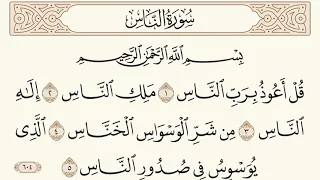 سُورَةُ النَّاسِ
بِسْمِ ٱللَّهِ ٱلرَّحْمَٰنِ ٱلرَّحِيمِ
قُلْ أَعُوذُ بِرَبِّ ٱلنَّاسِ ١ مَلِكِ ٱلنَّاسِ ٢ إِلَٰهِ
ٱلنَّاسِ ٣ مِن شَرِّ ٱلْوَسْوَاسِ ٱلْخَنَّاسِ ٤ ٱلَّذِى
يُوَسْوِسُ فِى صُدُورِ ٱلنَّاسِ ٥
٦٠٤